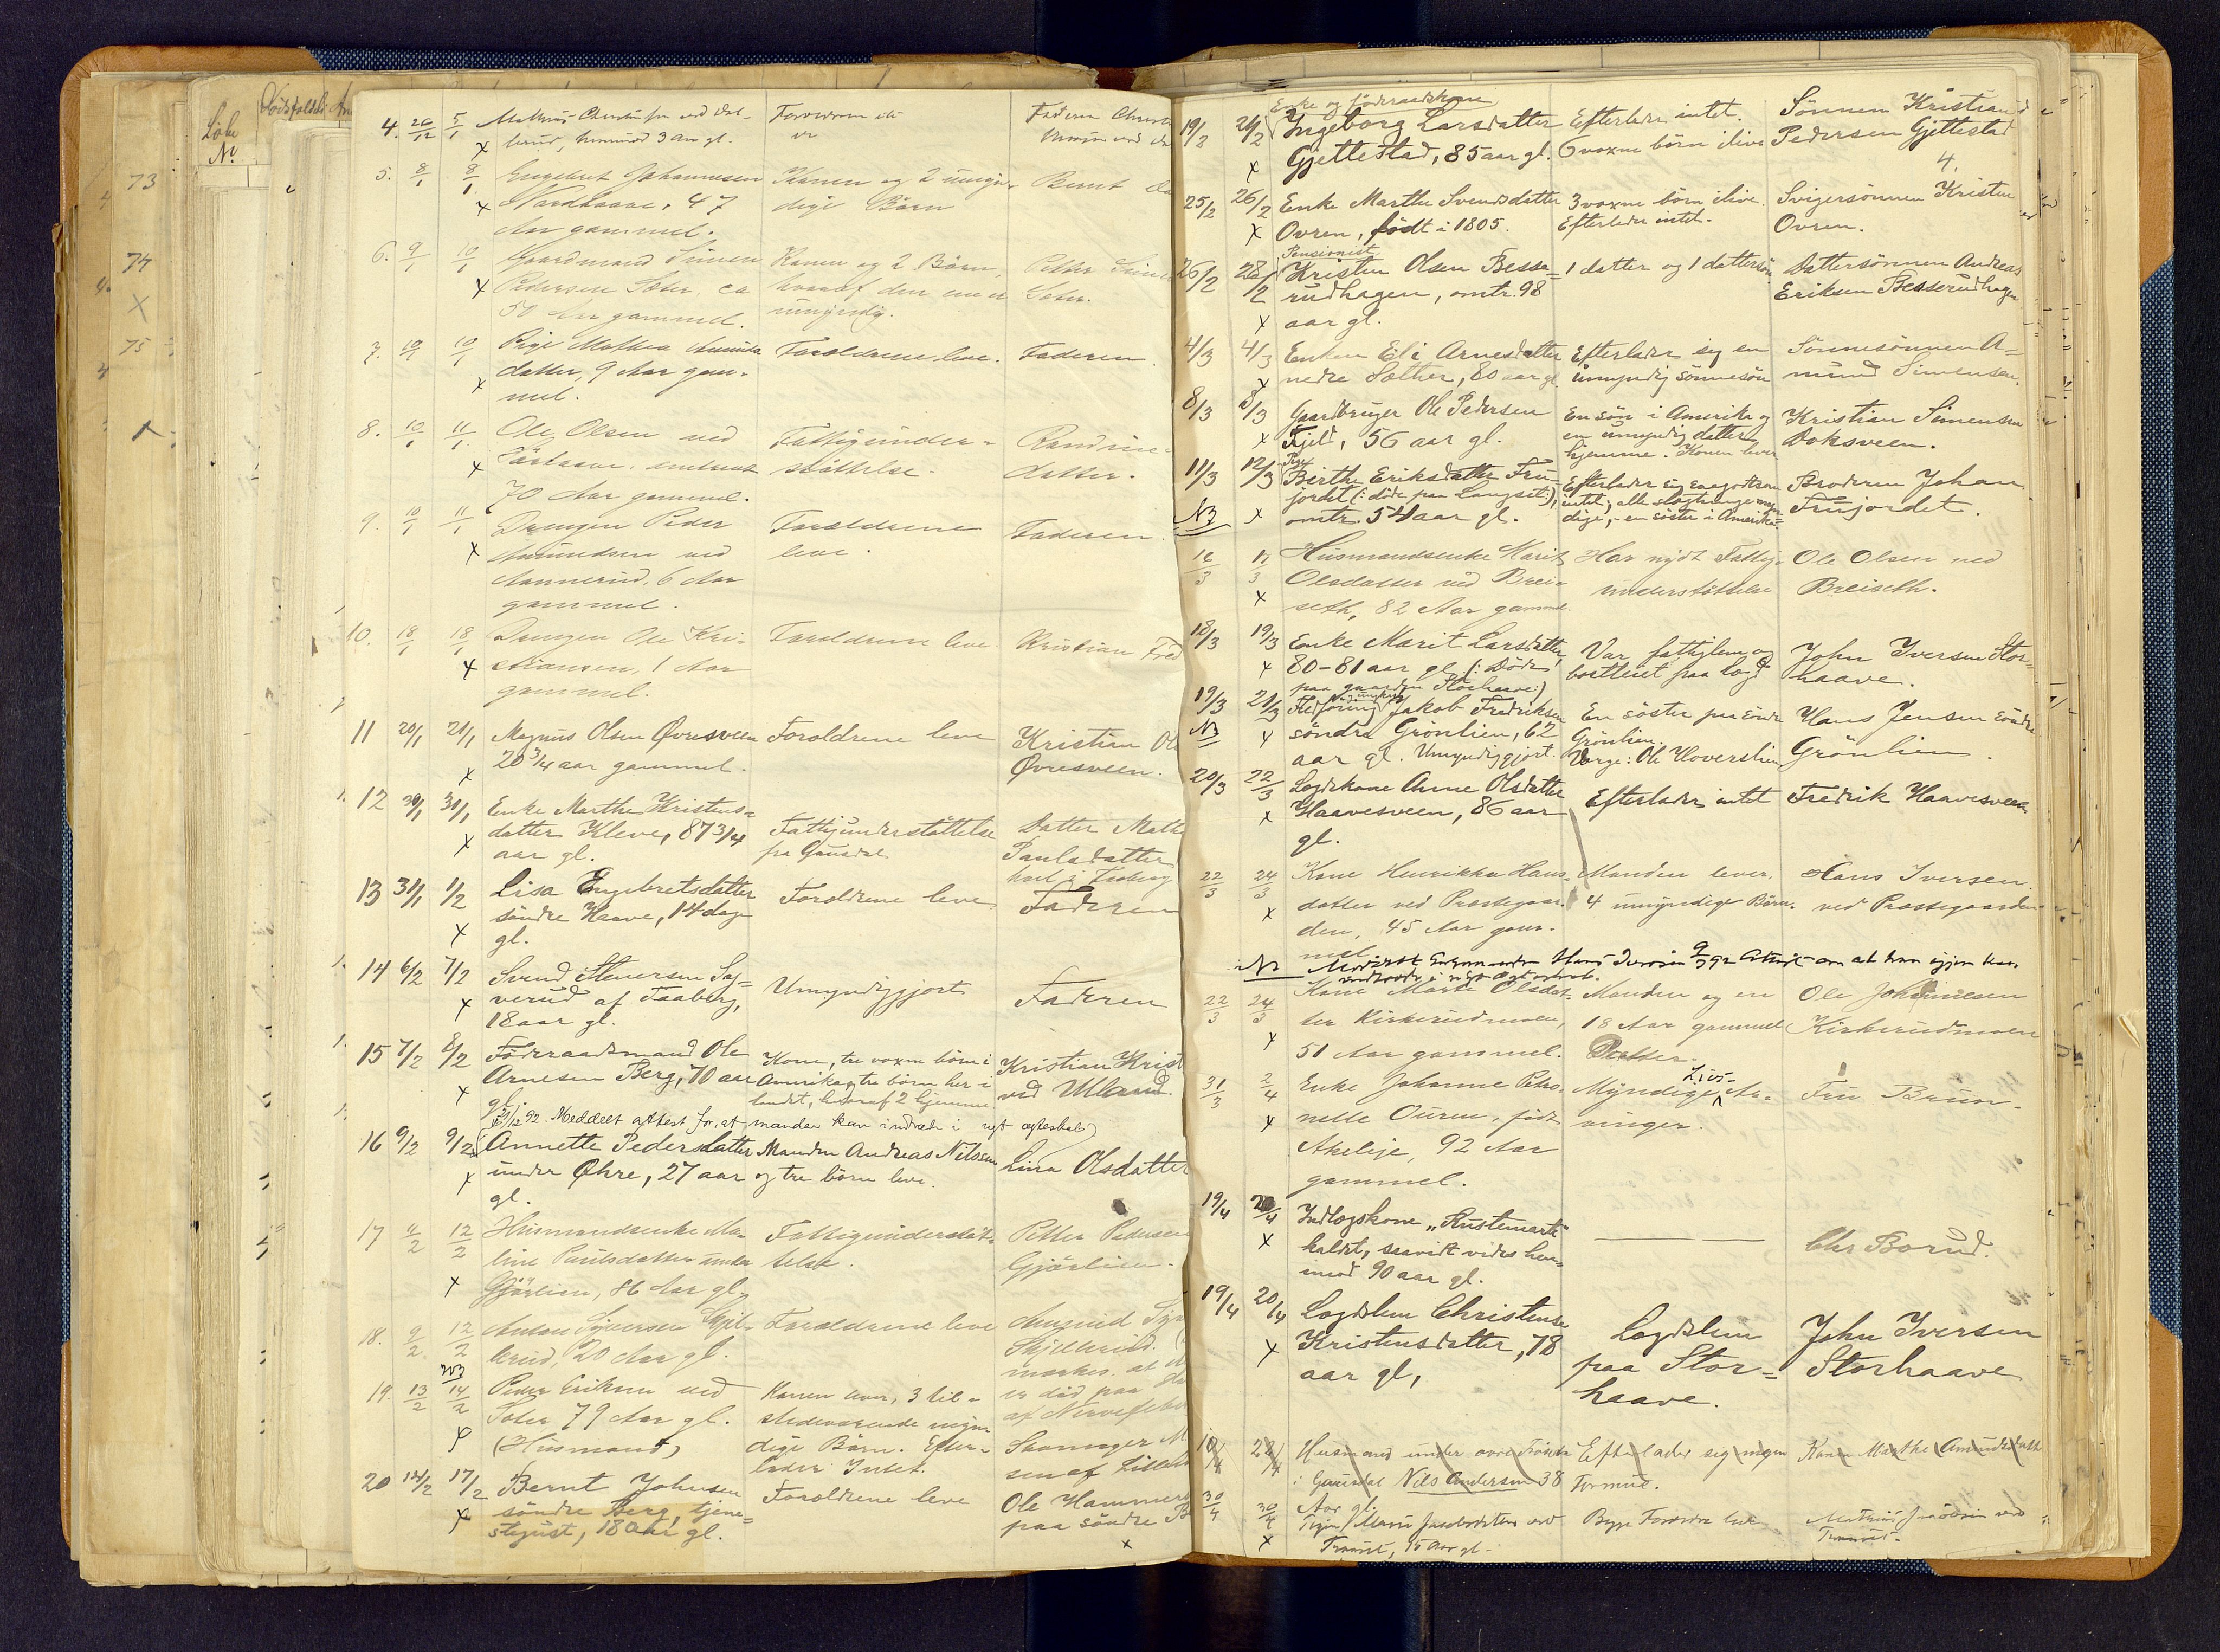 Løbe
No
73
74
75
4. 26/12 5/1
lerud, 3 Aar gl.
Forældrene
Faderen
5. 8/1 8/1 Engebret Johannesen
Konen og 2 umyn-
Bernt
Nordhaave, 47
dige Børn
Aar gammel.
6. 9/1 10/1 Gaardmand Simen
Konen og 2 Børn,
Petter
Pedersen Sæter, ca
hvoraf den ene er
Sæter.
50 Aar gammel.
umyndig.
7. 10/1 10/1 Pige Mathea Amunds
Forældrene leve.
Faderen.
datter, 9 Aar gam-
mel.
8. 10/1 11/1 Ole Olsen ved
Fattigunder-
Storhaave, omtrent
støttelse.
datter.
70 Aar gammel.
9. 10/1 11/1 Drengen Peder
Forældrene
Faderen.
Amundsen ved
leve.
Aannerud, 6 Aar
gammel.
10. 18/1 18/1 Drengen Ole Kri-
Forældrene leve.
Kristian Fred
stiansen, 1 Aar
gammel.
11 20/1 21/1 Magnus Olsen Øvresveen
Forældrene leve
Kristian Ol
20 3/4 aar gammel.
Øvresveen.
12 30/1 31/1 Enke Marthe Kristens-
datter Kleve, 87 3/4
Fattigunderstøttelse
Datter Math
aar gl.
fra Gausdal
Paulsdatter
13 31/1 1/2 Lisa Engebretsdatter
Forældrene leve
Faderen
søndre Haave, 14 dage
gl.
14 6/2 7/2 Svend Stenersen Sy=
Umyndiggjort
Faderen
verud af Faaberg,
18 aar gl.
15 7/2 8/2 Føderaadsmand Ole
Kone, tre voxne børn i
Kristian Krist
Arnesen Berg, 70 aar
Amerika og tre børn her i
ved Ulland.
gl.
landet, hvoraf 2 hjemme.
92 Meddelt attest for, at manden kan indtræde i nyt ægteskab
16 9/2 9/2 Annette Pedersdatter
Manden Andreas Nilssen
Lina Olsdatter
under Øhre, 27 aar
og tre børn leve.
gl.
17 11/2 12/2 Husmandsenke Ma-
Fattigunderstøt-
Petter Pedersen
line Paulsdatter under
telse.
Gjørlien.
Gjørlien, 86 Aar gl.
18. 9/2 12/2 Anton Syversen Skjel-
Forældrene leve
Amund
lerud, 20 Aar gl.
Skjellerud.
19. 13/2 14/2 Peder Eriksen ved
Konen lever, 3 til-
er død paa
Sæter 79 Aar gl.
stedeværende myn-
(Husmand)
dige Børn. Efter-
Skomager
lader Intet.
sen af Lilleh
20 14/2 17/2 Bernt Johnsen
Forældrene leve
Ole Hammer
søndre Berg, tjene=
paa søndre B
stegut, 18 Aar gl.
Enke og føderaadskone
19/2 24/2 Ingeborg Larsdatter
Efterlader intet.
Sønnen Kristian
Gjettestad, 85 aar gl.
6 voxne børn ilive
Pedersen Gjettestad
4.
25/2 26/2 Enke Marthe Svendsdatter
3 voxne børn ilive.
Svigersønnen Kristen
Ovren, født i 1805.
Efterlader intet.
Ovren.
Pensionist
26/2 28/2 Kristen Olsen Besse=
1 datter og 1 dattersøn
Dattersønnen Andreas
rudhagen, omtr. 98
Eriksen Besserudhagen
aar gl.
4/3 4/3 Enken Eli Arnesdatter
Efterlader sig en
Sønnesønnen A=
nedre Sæther, 80 aar gl.
umyndig sønnesøn
mund Simensen.
8/3 8/3 Gaardbruger Ole Pedersen
En søn i Amerika og
Kristian Simensen
Fjeld, 56 aar gl.
en umyndig datter
Doksveen.
hjemme. Konen lever
Pige
11/3 12/3 Birthe Eriksdatter Fru-
Efterlader sig
Broderen Johan
jordet (: døde paa Langset:),
intet; alle slægtninge myn
Frujordet.
omtr. 54 aar gl.
dige, - en søster i Amerika
NB
16/3 17/3 Husmandsenke Marit
Har nydt Fattig-
Ole Olsen ved
Olsdatter ved Brei-
understøttelse
Breiseth.
seth, 82 Aar gammel.
18/3 19/3 Enke Marit Larsdatter,
Var fattiglem og
John Iversen Stor=
80-81 aar gl. (: Døde
bortleiet paa lægd
haave.
paa gaarden Storhaave:)
19/3 21/3 Jakob Fredriksen
En søster paa søndre
Hans Jensen søndre
NB
søndre Grønlien, 62
Grønlien.
Grønlien
aar gl. Umyndiggjort.
Værge: Ole Hoverslien
20/3 22/3 Lægdskone Anne Olsdatter
Efterlader intet
Fredrik Haavesveen
Haavesveen, 86 aar
gl.
22/3 24/3 Kone Henrikka Hans-
Manden lever.
Hans Iversen
datter ved Præstegaar-
4 umyndige Børn.
ved Præstegaarden
den, 45 Aar gam-
mel.
NB Meddelt Enkemanden Hans Iversen 9/7 92 Attest om at han igjen kan
indtræde i nyt Ægteskab.
22/3 24/3 Kone Marte Olsdat-
Manden og en
Ole Johannesen
ter Kirkerudmoen,
18 Aar gammel
Kirkerudmoen
51 Aar gammel.
Datter.
31/3 2/4 Enke Johanne Petro-
Myndige Livs-Ar-
Fru Brun.
nelle Ouren, født
vinger.
Akeleje, 92 Aar
gammel.
19/4 20/4 Indlægskone "Rustemarte"
Chr Borud.
kaldet, saavidt vides hen=
imod 90 aar gl.
19/4 20/4 Lægdslem Christense
Lægdslem
John Iversen
Kristensdatter, 78
paa Stor=
Storhaave
aar gl,
haave.
Husmand under
Efterlader sig ingen
Konen Marthe Amundsdatt
i Gausdal Nils Andersen 38
Formue.
Aar gl.
30/4 30/4 Pigen Marie Jacobsdatter ved
Begge Forældre lever
ved
15 Aar gl.